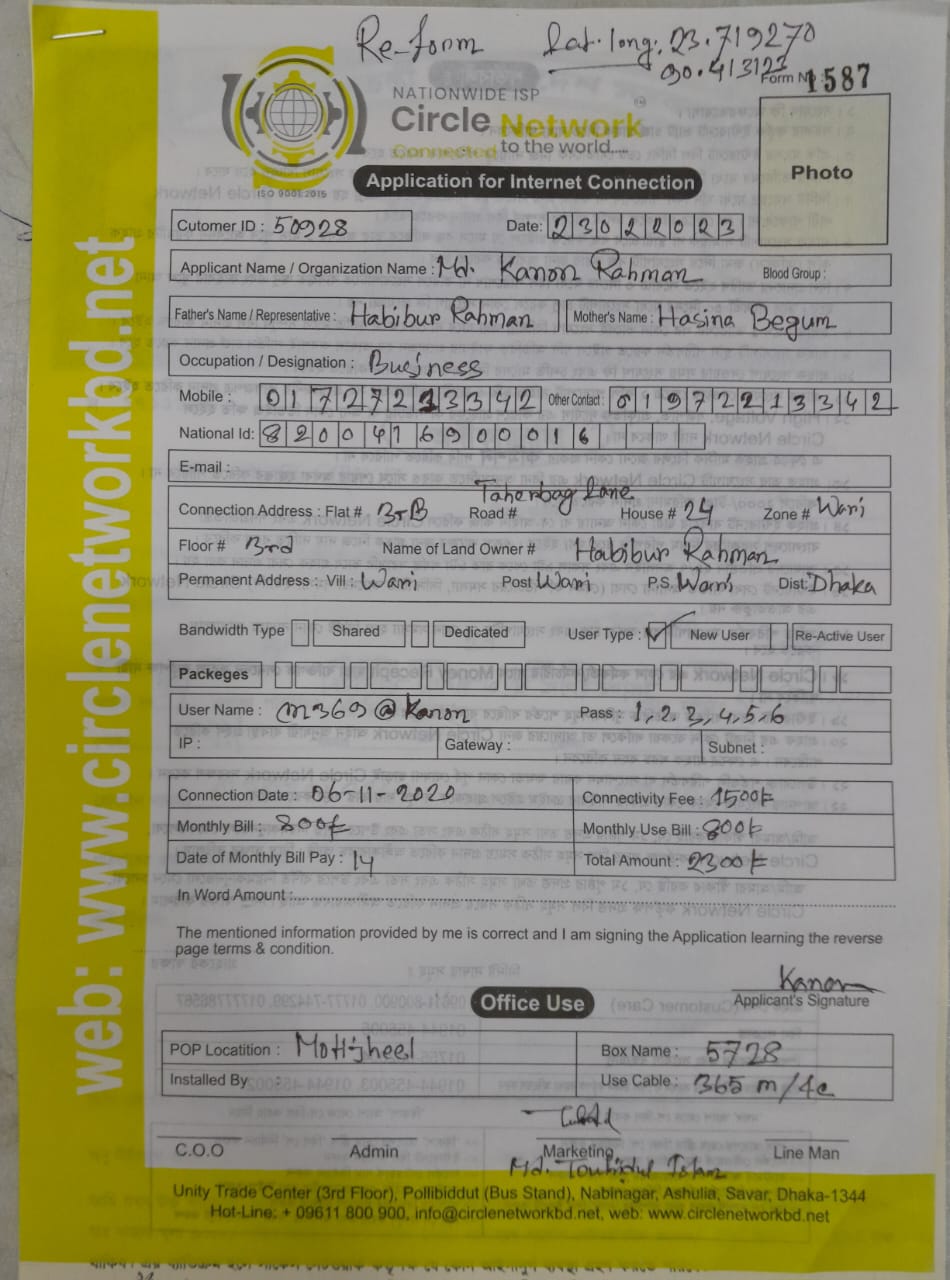 Re-form Lat. long: 23.719270
90.413123
Form No: 1587
NATIONWIDE ISP
Circle Network
Connected to the world.....
ISO 9001:2015
Photo
Application for Internet Connection
Cutomer ID : 50928 Date: 23022023
Applicant Name / Organization Name : Md. Kanon Rahman Blood Group :
Father's Name / Representative : Habibur Rahman Mother's Name : Hasina Begum
Occupation / Designation : Business
Mobile : 01727213342 Other Contact : 01972213342
National Id: 8200476900016
E-mail :
Connection Address : Flat # 3rB Road # Taherbag Lane House # 24 Zone # Wari
Floor # 3rd Name of Land Owner # Habibur Rahman
Permanent Address : Vill : Wari Post Wari P.S. Warri Dist: Dhaka
Bandwidth Type Shared Dedicated User Type : ✓ New User Re-Active User
Packeges
User Name : m369@Kanon Pass : 1,2,3,4,5,6
IP : Gateway : Subnet :
Connection Date : 06-11-2020 Connectivity Fee : 1500৳
Monthly Bill : 800৳ Monthly Use Bill : 800৳
Date of Monthly Bill Pay : 14 Total Amount : 2300৳
In Word Amount :
The mentioned information provided by me is correct and I am signing the Application learning the reverse
page terms & condition.
Kanon
Applicant's Signature
Office Use
POP Locatition : Mottijheel Box Name : 5728
Installed By : Use Cable : 365 m/4c
C.O.O Admin Marketing Line Man
Md. Touhidul Islam
Unity Trade Center (3rd Floor), Pollibiddut (Bus Stand), Nabinagar, Ashulia, Savar, Dhaka-1344
Hot-Line: + 09611 800 900, info@circlenetworkbd.net, web: www.circlenetworkbd.net
web: www.circlenetworkbd.net